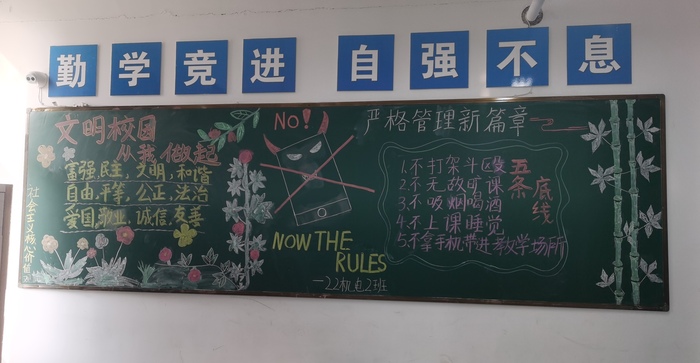 勤学竞进 自强不息
文明校园
从我做起
富强,民主,文明,和谐
自由,平等,公正,法治
爱国,敬业,诚信,友善
社会主义核心价值观
NO!
NOW THE
RULES
一22机电2班
严格管理新篇章
五条底线
1.不打架斗殴
2.不无故旷课
3.不吸烟喝酒
4.不上课睡觉
5.不拿手机带进教学场所